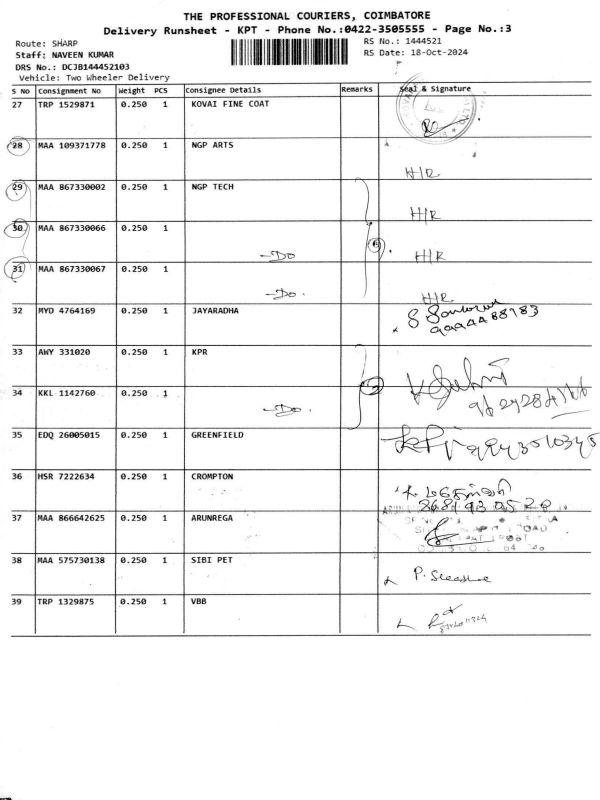 THE PROFESSIONAL COURIERS, COIMBATORE
Delivery Runsheet - KPT - Phone No.:0422-3505555 - Page No.:3
Route: SHARP
RS No.: 1444521
Staff: NAVEEN KUMAR
RS Date: 18-Oct-2024
DRS No.: DCJB144452103
Vehicle: Two Wheeler Delivery
S No Consignment No Weight PCS Consignee Details Remarks Seal & Signature
27 TRP 1529871 0.250 1 KOVAI FINE COAT
28 MAA 109371778 0.250 1 NGP ARTS
H/R
29 MAA 867330002 0.250 1 NGP TECH
H/R
30 MAA 867330066 0.250 1
-Do H/R
31 MAA 867330067 0.250 1
-Do. H/R
32 MYD 4764169 0.250 1 JAYARADHA
9994488783
33 AWY 331020 0.250 1 KPR
34 KKL 1142760 0.250 1
-Do.
35 EDQ 26005015 0.250 1 GREENFIELD
36 HSR 7222634 0.250 1 CROMPTON
37 MAA 866642625 0.250 1 ARUNREGA
38 MAA 575730138 0.250 1 SIBI PET
39 TRP 1329875 0.250 1 VBB